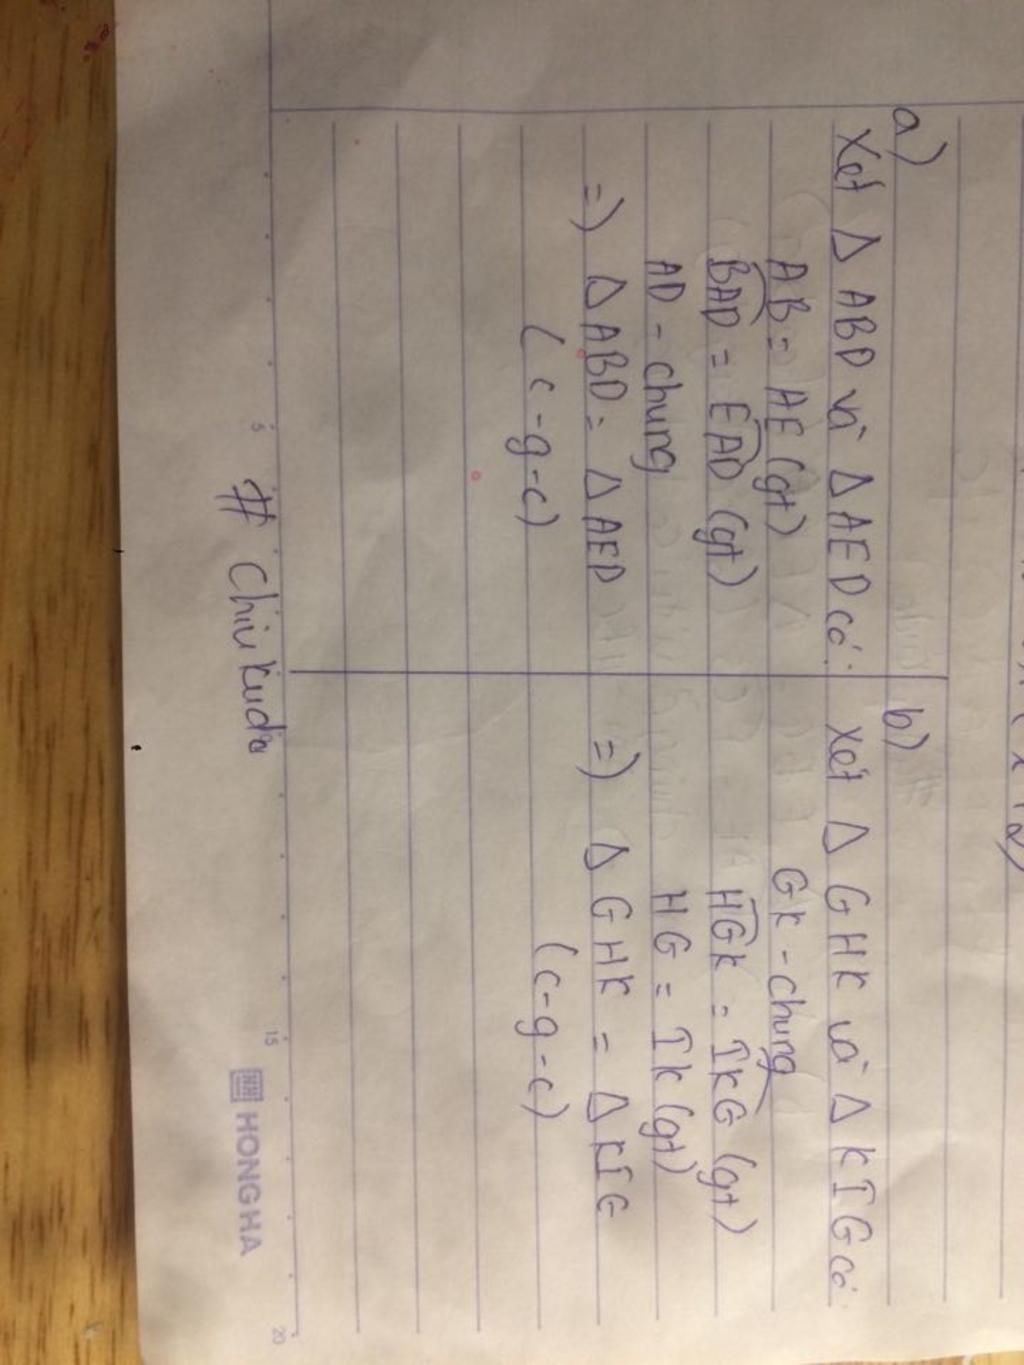 a)
Xét Δ ABD và Δ AED có:
AB = AE (gt)
BAD = EAD (gt)
AD - chung
=) Δ ABD = Δ AED
(c-g-c)
b)
Xét Δ GHK và Δ KIG có
GK - chung
HGK = IKG (gt)
HG = IK (gt)
=) Δ GHK = Δ KIG
(c-g-c)
# Chiu Kudo
5
15
20
HONG HA